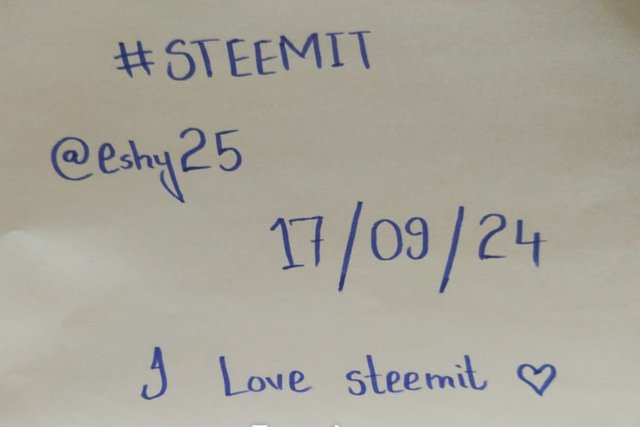 #STEEMIT
@eshy25
17/09/24
I Love steemit ♡